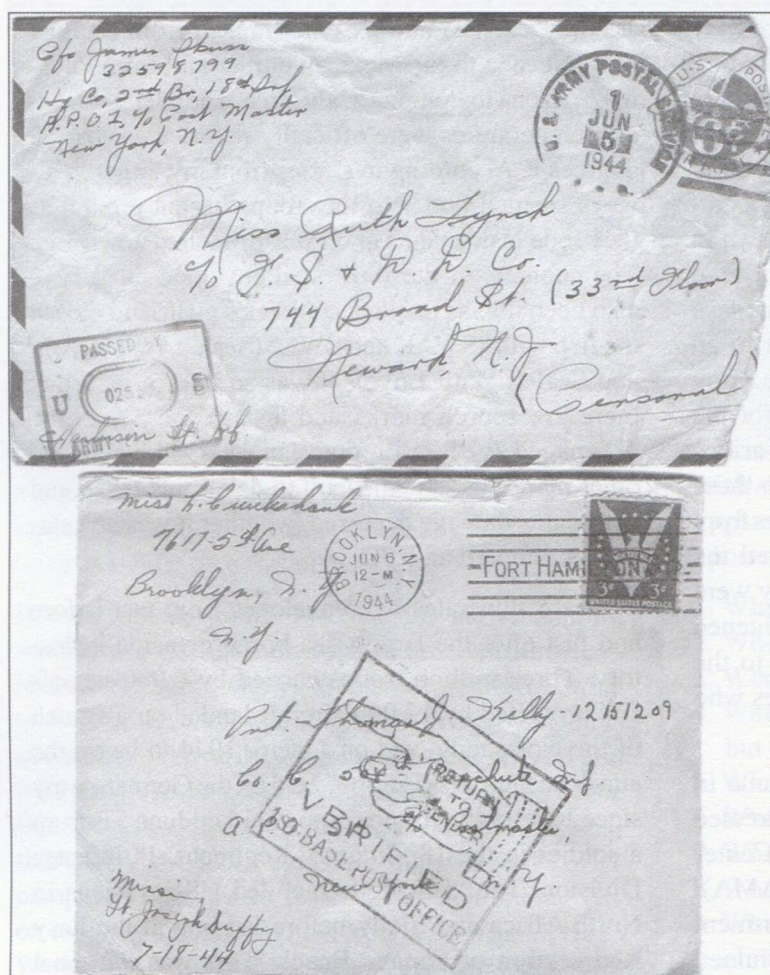 Pfc James
32598799
Hq Co, 2nd Bn, 18th Inf
A.P.O 1, c/o Post Master
New York, N.Y.
U.S. ARMY POSTAL SERVICE
1
JUN
5
1944
Miss Ruth Lynch
c/o F. S. + D. D. Co.
744 Broad St. (33rd Floor)
Newark, N.J
(Personal)
PASSED
U S
ARMY
Miss
7617-5th Ave
Brooklyn, N.Y
N.Y.
BROOKLYN, N.Y.
JUN 6
12-M
1944
FORT HAMILTON
3¢ 3¢
UNITED STATES POSTAGE
Pvt. Thomas J. Kelly - 12151209
Co. C. Parachute Inf
A.P.O. Postmaster,
New York N.Y
RETURN
TO
SENDER
VERIFIED
BASE POST OFFICE
Missing
Lt. Joseph Duffy
7-18-44